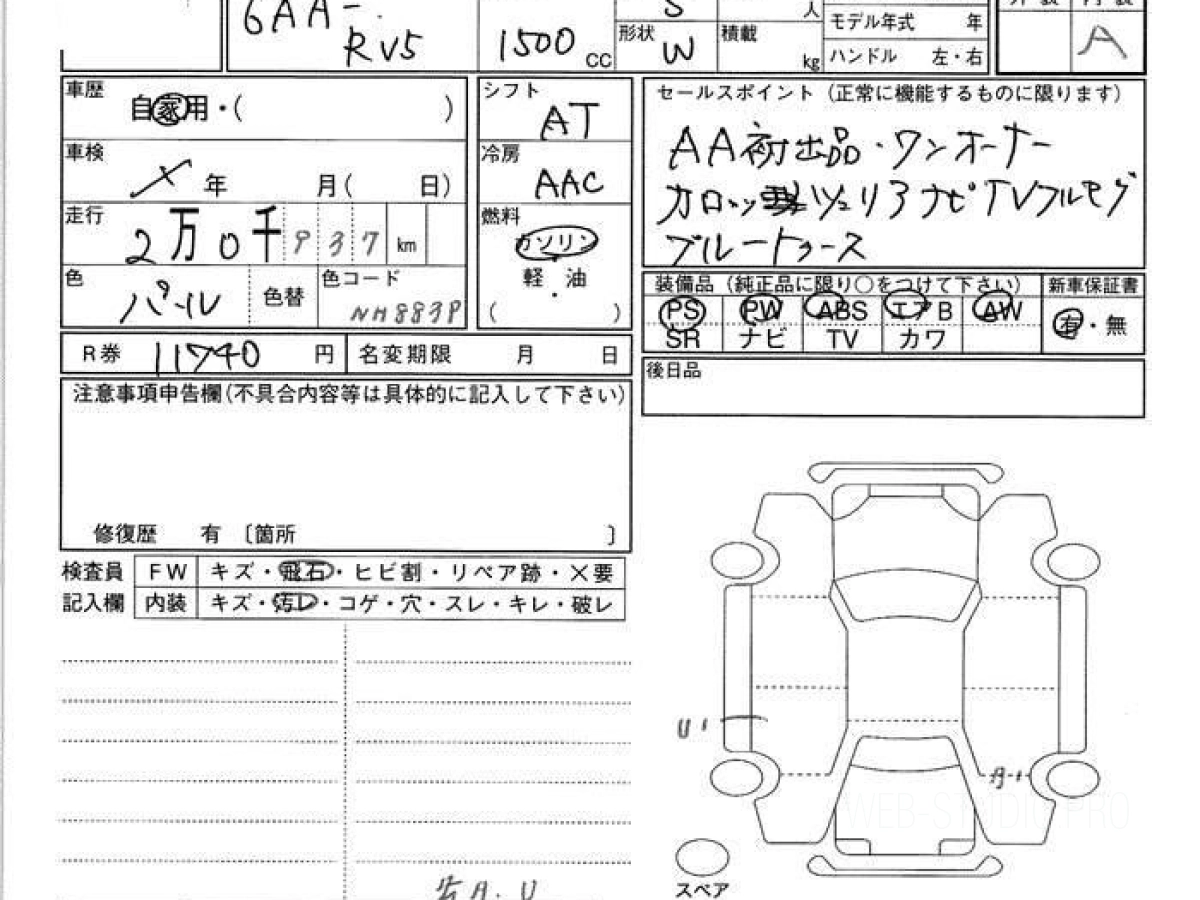 6AA-
RV5
1500 cc
形状 W
積載 kg
人
モデル年式 年
ハンドル 左・右
A
車歴 自家用・( )
車検 × 年 月( 日)
走行 2万0千937 km
色 パール 色替 色コード NH883P
シフト AT
冷房 AAC
燃料 ガソリン
軽・油
( )
セールスポイント (正常に機能するものに限ります)
AA初出品・ワンオーナー
ナビTVフルセグ
ブルートゥース
装備品 (純正品に限り○をつけて下さい) 新車保証書
PS PW ABS エアB AW 有・無
SR ナビ TV カワ
R券 11740 円 名変期限 月 日
後日品
注意事項申告欄(不具合内容等は具体的に記入して下さい)
修復歴 有 〔箇所 〕
検査員 FW キズ・飛石・ヒビ割・リペア跡・×要
記入欄 内装 キズ・汚レ・コゲ・穴・スレ・キレ・破レ
U1
A1
WEB-STUDIO PRO
スペア
A.U